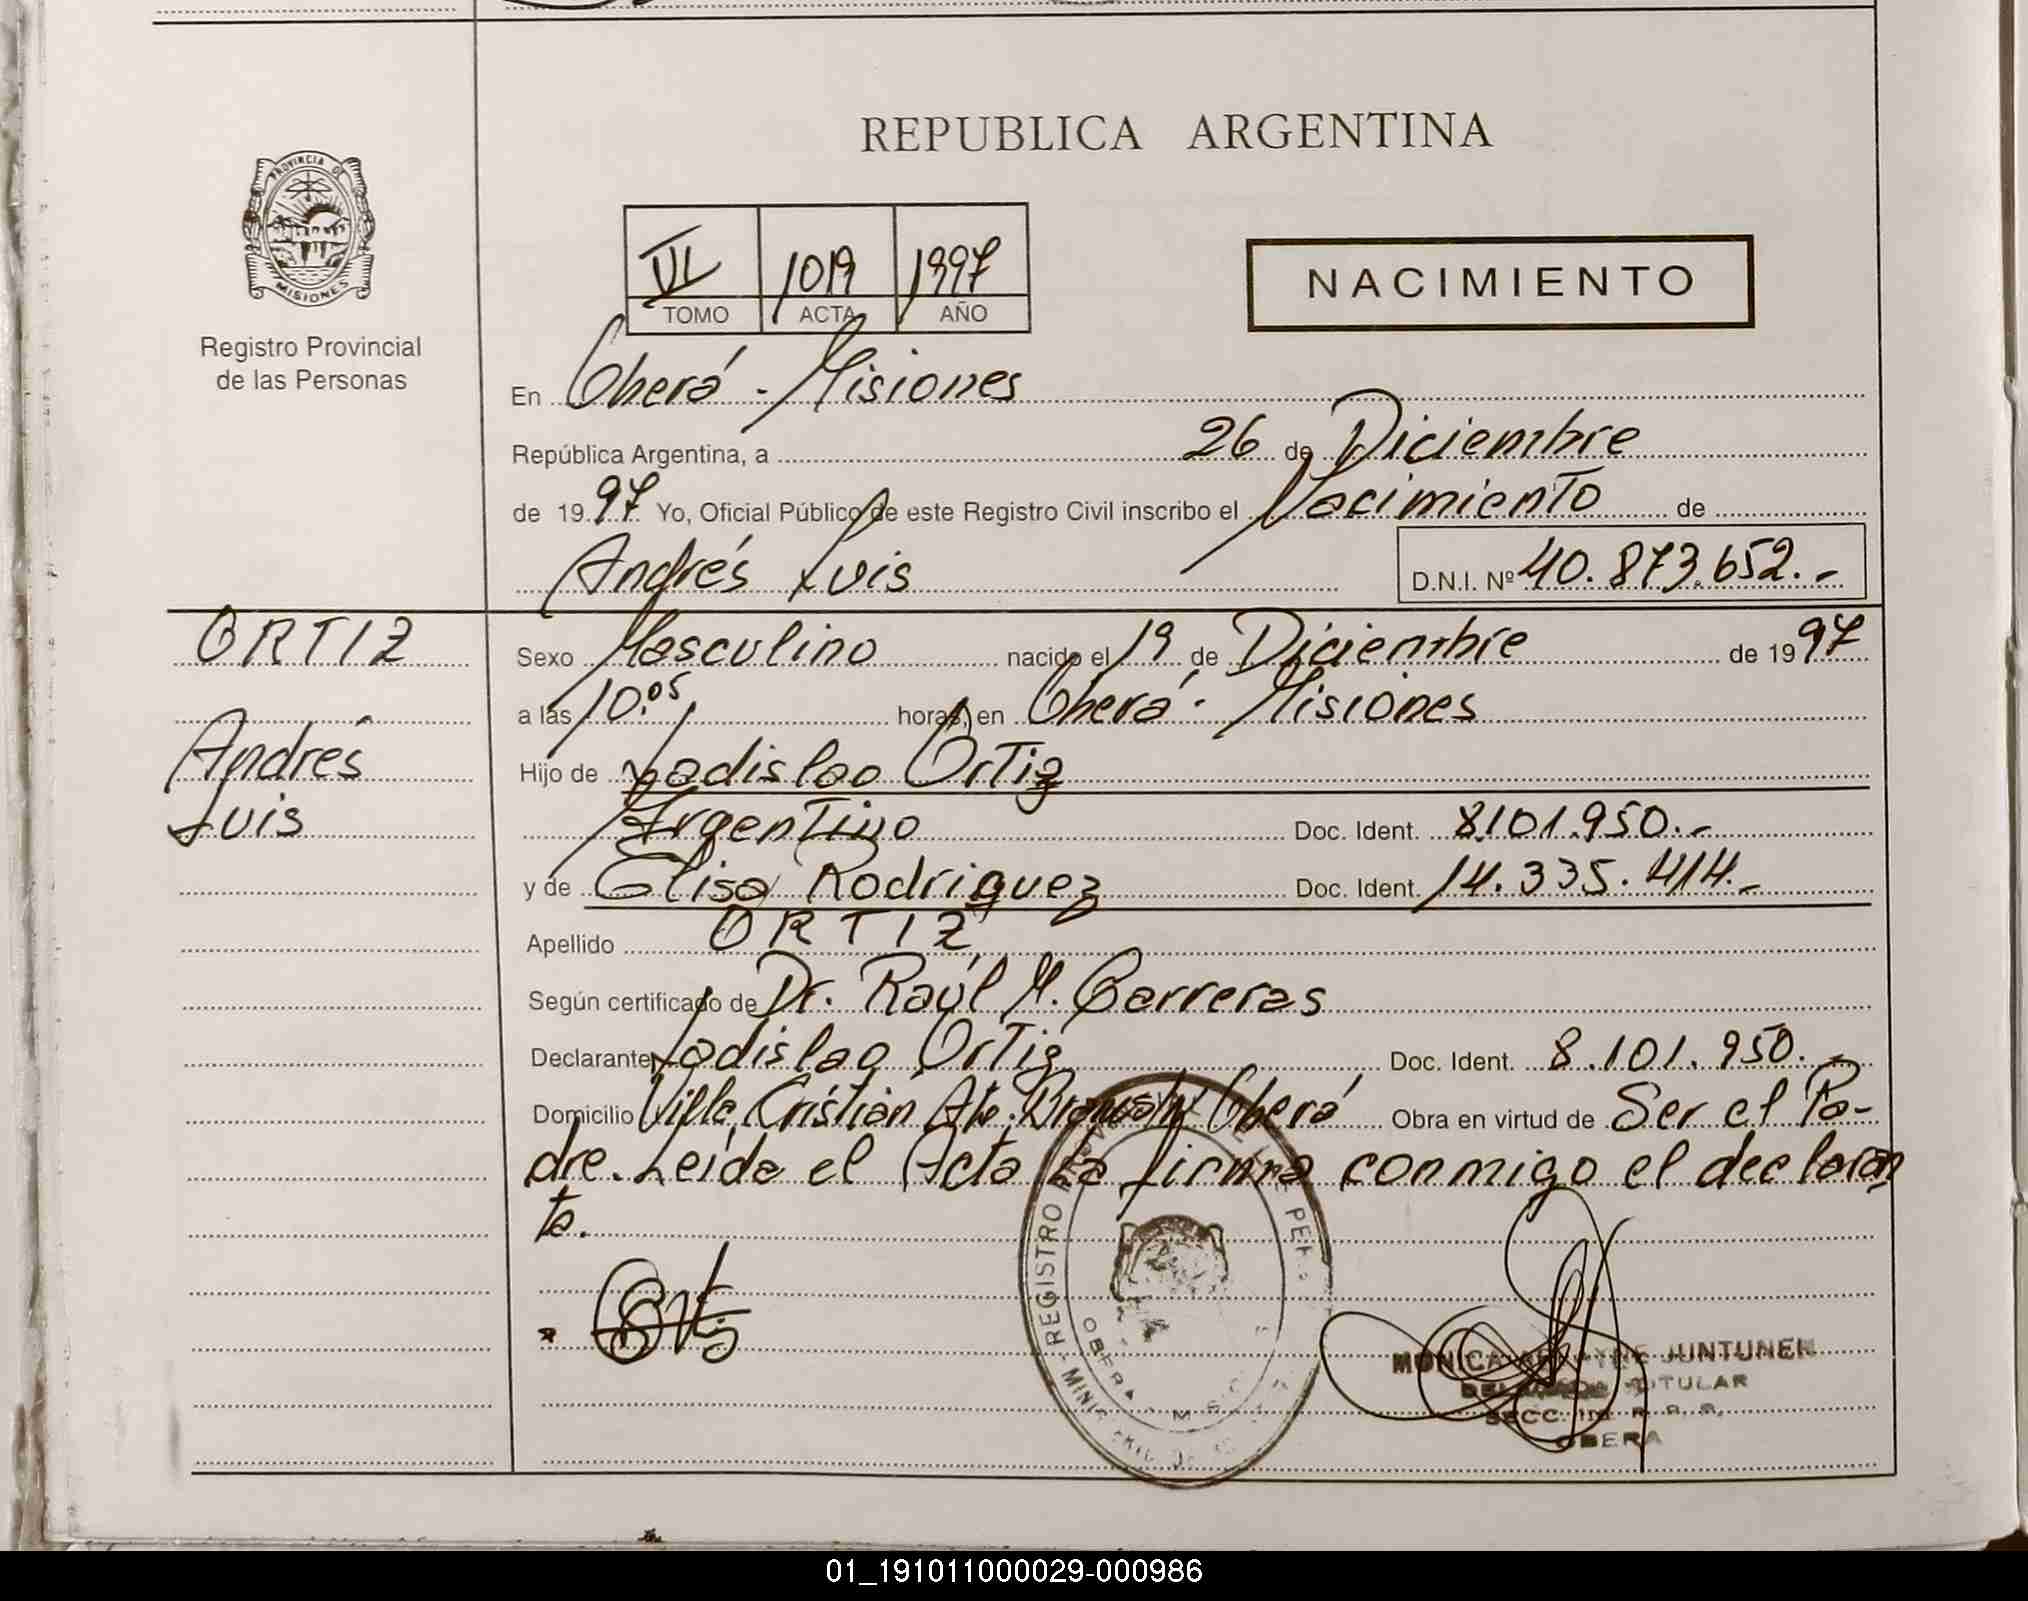 REPUBLICA ARGENTINA
PROVINCIA DE
MISIONES
Registro Provincial
de las Personas
VI 1019 1997
TOMO ACTA AÑO
NACIMIENTO
En Oberá - Misiones
República Argentina, a 26 de Diciembre
de 1997 Yo, Oficial Público de este Registro Civil inscribo el Nacimiento de
Andrés Luis D.N.I. Nº 40.873.652.-
ORTIZ
Andrés
Luis
Sexo Masculino nacido el 19 de Diciembre de 1997
a las 10.05 horas, en Oberá - Misiones
Hijo de Ladislao Ortiz
Argentino Doc. Ident. 8.101.950.-
y de Elisa Rodriguez Doc. Ident. 14.335.414.-
Apellido ORTIZ
Según certificado de Dr. Raúl M. Carreras
Declarante Ladislao Ortiz Doc. Ident. 8.101.950.-
Domicilio Villa Cristian Ate. Brown Oberá Obra en virtud de Ser el Pa-
dre. Leída el Acta La firma conmigo el declaran
te.
Ortiz
REGISTRO
OBERA
MONICA JUNTUNEN
TITULAR
SECC.
OBERA
01_191011000029-000986